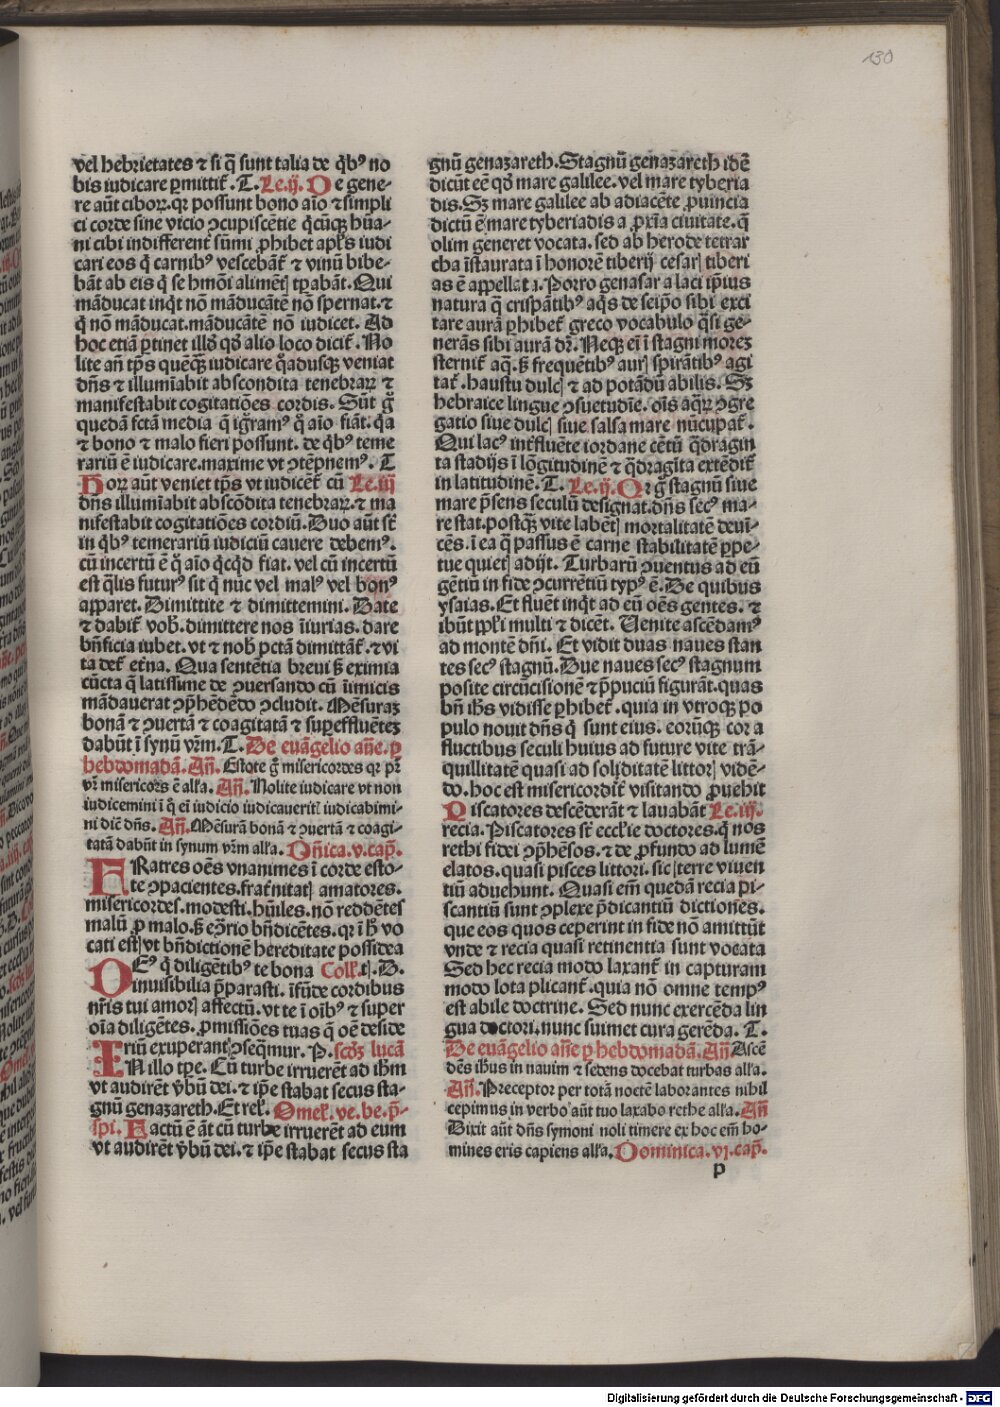 130
vel hebrietates ⁊ si q̄ sunt talia de q̇bꝰ no
bis iudicare ꝑmittit᷑. T. Le.ij. De gene-
re aūt ciboꝝ. qꝛ possunt bono aīo ⁊ simpli
ci corde sine vicio ꝯcupiscētie q̇cūqꝫ hūa-
ni cibi indifferent᷑ sūmi ꝓhibet apl's iudi
cari eos q̇ carnibꝰ vescebāt᷑ ⁊ vinū bibe-
bāt ab eis q̇ se hmōi alimētꝭ tꝑabāt. Qui
māducat inq̇t non māducātē nō spernat. ⁊
q̇ nō māducat. māducātē nō iudicet. Ad
hoc etiā ꝑtinet illd' qd' alio loco dicit᷑. No
lite an̄ tp̄s quēqꝫ iudicare q̇adusqꝫ veniat
dn̄s ⁊ illumīabit abscondita tenebraꝝ ⁊
manifestabit cogitatiōes cordis. Sūt g̊
quedā fcā media q̄ ig̊ramꝰ q̊ aīo fiāt. q̇a
⁊ bono ⁊ malo fieri possunt. de q̇bꝰ teme
rariū ē iudicare. maxime vt ꝯtēpnemꝰ. T
Hoꝝ aūt veniet tp̄s vt iudicēt᷑ cū Le.iij
dn̄s illumīabit abscōdita tenebraꝝ. ⁊ ma
nifestabit cogitatiōes cordiū. Duo aūt st̄
in q̇bꝰ temerariū iudiciū cauere debemꝰ.
cū incertū ē q̊ aīo q̇cq̇d fiat. vel cū incertū
est q̄lis futurꝰ sit q̇ nūc vel malꝰ vel bonꝰ
apparet. Dimittite ⁊ dimittemini. Date
⁊ dabit᷑ vob̄. dimittere nos īiurias. dare
bn̄ficia iubet. vt ⁊ nob̄ pctā dimittāt᷑. ⁊ vi
ta det᷑ et̄na. Qua sentētia breui sꝫ eximia
cūcta q̄ latissime de ꝯuersando cū īimicis
mādauerat ꝯp̄hēdēdo ꝯcludit. Mēsuraꝫ
bonā ⁊ ꝯuertā ⁊ coagitatā ⁊ suꝑeffluētē
dabūt ī synū vr̄m. T. De euāgelio an̄e. ꝑ
hebdomadā. An̄. Estote g̊ misericordes qꝛ pr̄
vr̄ misericors ē all'a. An̄. Nolite iudicare vt non
iudicemini ī q̊ ei iudicio iudicaueritꝭ iudicabimi-
ni diē dn̄s. An̄. Mēsurā bonā ⁊ ꝯuertā ⁊ coagi-
tatā dabūt in synum vr̄m all'a. Dn̄ica. v. cap̄.
FRatres oēs vnanimes ī corde esto-
te ꝯpacientes. frat̄nitatꝭ amatores.
misericordes. modesti. hūiles. nō reddētes
malū ꝓ malo. sꝫ eꝯ̄rio bn̄dicētes. qꝛ ī h̄ vo
cati estꝭ vt bn̄dictionē hereditate possidea
DEꝰ q̇ diligētibꝰ te bona Coll'. tꝭ. D.
inuisibilia p̄parasti. īfūde cordibus
nr̄is tui amorꝭ affectū. vt te ī oībꝰ ⁊ super
oīa diligētes. ꝓmissiōes tuas q̄ oē deside
riū exuperant ꝯseq̄mur. P. scd'ꝫ lucā
IN illo tꝑe. Cū turbe irruerēt ad ih̄m
vt audirēt v̄bū dei. ⁊ ip̄e stabat secus sta-
gnū genazareth. Et rel'. Omel'. ve. be. p̄-
spi. Factū ē āt cū turbe irruerēt ad eum
vt audirēt v̄bū dei. ⁊ ip̄e stabat secus sta
gnū genazareth. Stagnū genazareth idē
dicūt eē qd' mare galilee. vel mare tyberia
dis. Sꝫ mare galilee ab adiacēte ꝓuincia
dictū ē mare tyberiadis a ꝓxīa ciuitate. q̄
olim generet vocata. sed ab herode tetrar
cha īstaurata ī honorē tiberij cesarꝭ tiberi
as ē appellata. Porro genasar a laci ip̄ius
natura q̄ crispātibꝰ aq̇s de seip̄o sibi exci
tare aurā ꝑhibet᷑ greco vocabulo q̄si ge-
nerās sibi aurā dr̄. Neqꝫ ei ī stagni moreꝫ
sternit᷑ aq̄. sꝫ frequētibꝰ aurꝭ spirātibꝰ agi
tat᷑. haustu dulcꝭ ⁊ ad potādū abilis. Sꝫ
hebraice lingue ꝯsuetudīe. oīs aq̄ꝝ ꝯgre
gatio siue dulcꝭ siue salsa mare nūcupat᷑.
Qui lacꝰ int̄fluēte iordane cētū q̄dragin
ta stadijs ī lōgitudinē ⁊ q̄dragīta extēdit᷑
in latitudinē. T. Le.ij. Or g̊ stagnū siue
mare p̄sens seculū designat. dn̄s secꝰ ma-
re stat. postq̄ꝫ vite labētꝭ mortalitatē deuī-
cēs. ī ea q̄ passus ē carne stabilitatē ꝑpe-
tue quietꝭ adijt. Turbarū ꝯuentus ad eū
gētiū in fide ꝯcurrētiū typꝰ ē. De quibus
ysaias. Et fluēt inq̇t ad eū oēs gentes. ⁊
ibūt ppl'i multi ⁊ dicēt. Uenite ascēdamꝰ
ad montē dn̄i. Et vidit duas naues stan
tes secꝰ stagnū. Due naues secꝰ stagnum
posite circūcisionē ⁊ p̄puciū figurāt. quas
bn̄ ih̄s vidisse ꝑhibet᷑. quia in vtroqꝫ po
pulo nouit dn̄s q̇ sunt eius. eorūqꝫ cor a
fluctibus seculi huius ad future vite trā-
quillitatē quasi ad soliditatē littorꝭ vidē-
do. hoc est misericordit᷑ visitando ꝓuehit
Piscatores descēderāt ⁊ lauabāt Le.iij.
recia. Piscatores st̄ eccl'ie doctores. q̇ nos
rethi fidei ꝯp̄hēsos. ⁊ de ꝓfundo ad lumē
elatos. quasi pisces littori. sic terre viuen
tiū aduehunt. Quasi em̄ quedā recia pi-
scantiū sunt ꝯplexe p̄dicantiū dictiones.
que eos quos ceperint in fide nō amittūt
vnde ⁊ recia quasi retinentia sunt vocata
Sed hec recia modo laxant᷑ in capturam
modo lota plicant᷑. quia nō omne tempꝰ
est abile doctrine. Sed nunc exercēda lin
gua doctori. nunc suimet cura gerēda. T.
De euāgelio an̄e ꝑ hebdomadā. An̄ Ascē
dēs ih̄us in nauim ⁊ sedens docebat turbas all'a.
An̄. Preceptor per totā noctē laborantes nihil
cepimus in verbo aūt tuo laxabo rethe all'a. An̄
Dixit aūt dn̄s symoni noli timere ex hoc em̄ ho-
mines eris capiens all'a. Dominica. vj. cap̄.
p
Digitalisierung gefördert durch die Deutsche Forschungsgemeinschaft - DFG